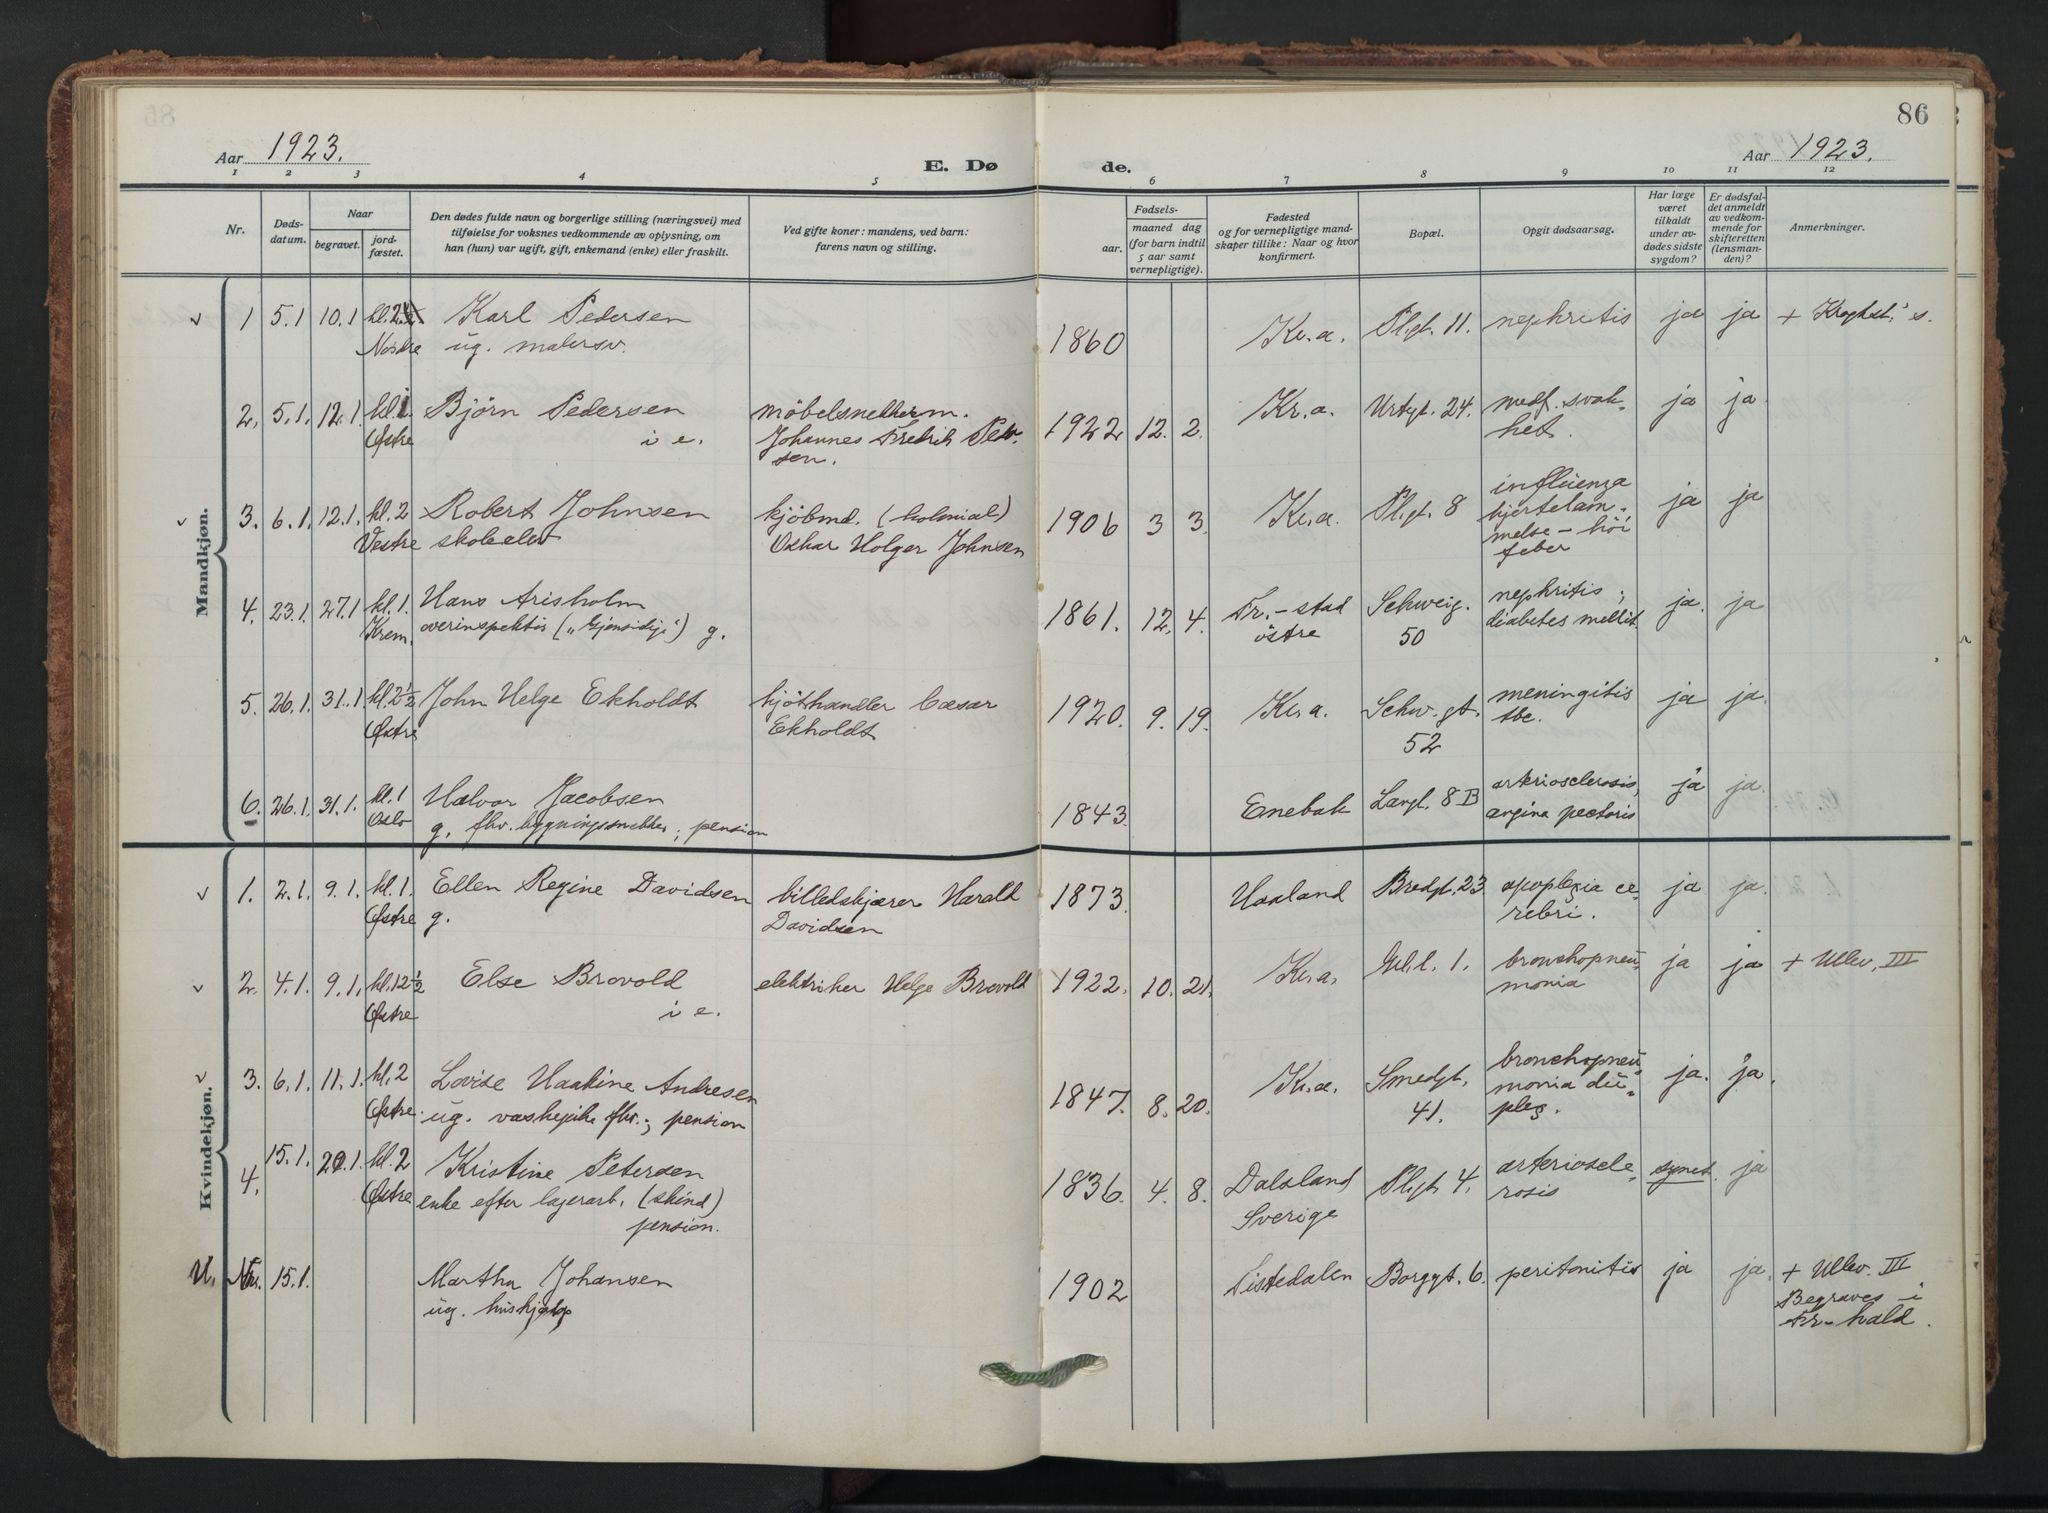 86
Aar 1923.
E. Dø de.
Aar 1923.
1 2 3 4 5 6 7 8 9 10 11 12
Nr.
Dødsdatum.
Naar
begravet.
jordfæstet.
Den dødes fulde navn og borgerlige stilling (næringsvei) med
tilføielse for voksnes vedkommende av oplysning, om
han (hun) var ugift, gift, enkemand (enke) eller fraskilt.
Ved gifte koner: mandens, ved barn:
farens navn og stilling.
Fødsels-
aar.
maaned dag
(for barn indtil
5 aar samt
vernepligtige).
Fødested
og for vernepligtige mand-
skaper tillike: Naar og hvor
konfirmert.
Bopæl.
Opgit dødsaarsag.
Har læge
været
tilkaldt
under av-
dødes sidste
sygdom?
Er dødsfal-
det anmeldt
av vedkom-
mende for
skifteretten
(lensman-
den)?
Anmerkninger.
Mandkjøn.
v 1 5.1 10.1 kl. 2 Karl Pedersen 1860 Kr.a. Pl.gt. 11. nephritis ja ja + Kroghst.' s.
Nordre ug. malersv.
2. 5.1. 12.1 kl. 1 Bjørn Pedersen möbelsnekkerm. 1922 12. 2. Kr.a. Urtgt. 24. medf. svak- ja ja
Østre i e. Johannes Fredrik Peder- het.
sen.
v 3. 6.1. 12.1. kl. 2 Robert Johnsen kjöbmd. (kolonial) 1906 3 3. Kr.a. Pl.gt. 8 influenza ja ja
Vestre skoleelev Oskar Holger Johnsen hjertelam-
melse - höi
feber
4. 23.1. 27.1 kl. 1. Hans Arisholm 1861. 12. 4. Fr.-stad Schweig. nephritis; ja. ja
Krem. overinspektör („Gjensidige") g. östre 50 diabetes mellit.
5. 26.1. 31.1 kl. 2½ John Helge Ekholdt kjöthandler Cæsar 1920. 9. 19. Kr.a. Schw.gt. meningitis ja ja.
Østre Ekholdt 52 tbc.
6. 26.1. 31.1. kl. 1 Halvor Jacobsen 1843. Enebak Langt. 8 B arteriosclerosis, ja ja.
Oslo g. fhv. bygningssnekker; pension angina pectoris
Kvindekjøn.
v 1. 2.1. 9.1. kl. 1. Ellen Regine Davidsen billedskjærer Harald 1873. Haaland Bredgt. 23 apoplexia ce- ja ja.
Østre g. Davidsen rebri.
v 2. 4.1. 9.1. kl. 12½ Else Brovold elektriker Helge Brovold 1922. 10. 21. Kr.a. 1. bronchopneu- ja ja + Ullev. III
Østre i e. monia
v 3. 6.1. 11.1. kl. 2 Lovise Haakine Andresen 1847. 8. 20. Kr.a. Smedgt. bronchopneu- ja. ja.
Østre. ug. fhv.; pension 41. monia du-
plex.
4. 15.1. 20.1. kl. 2 Kristine Petersen 1836. 4. 8. Dalsland Pl.gt. 4. arterioscle- synet. ja
Østre enke efter lagerarb. (skind) Sverige rosis
pension.
U. Nr. 15.1. Martha Johansen 1902 Tistedalen Borggt. 6. peritonitis ja ja. + Ullev. III
ug. hushjelp Begraves i
Fr-hald.